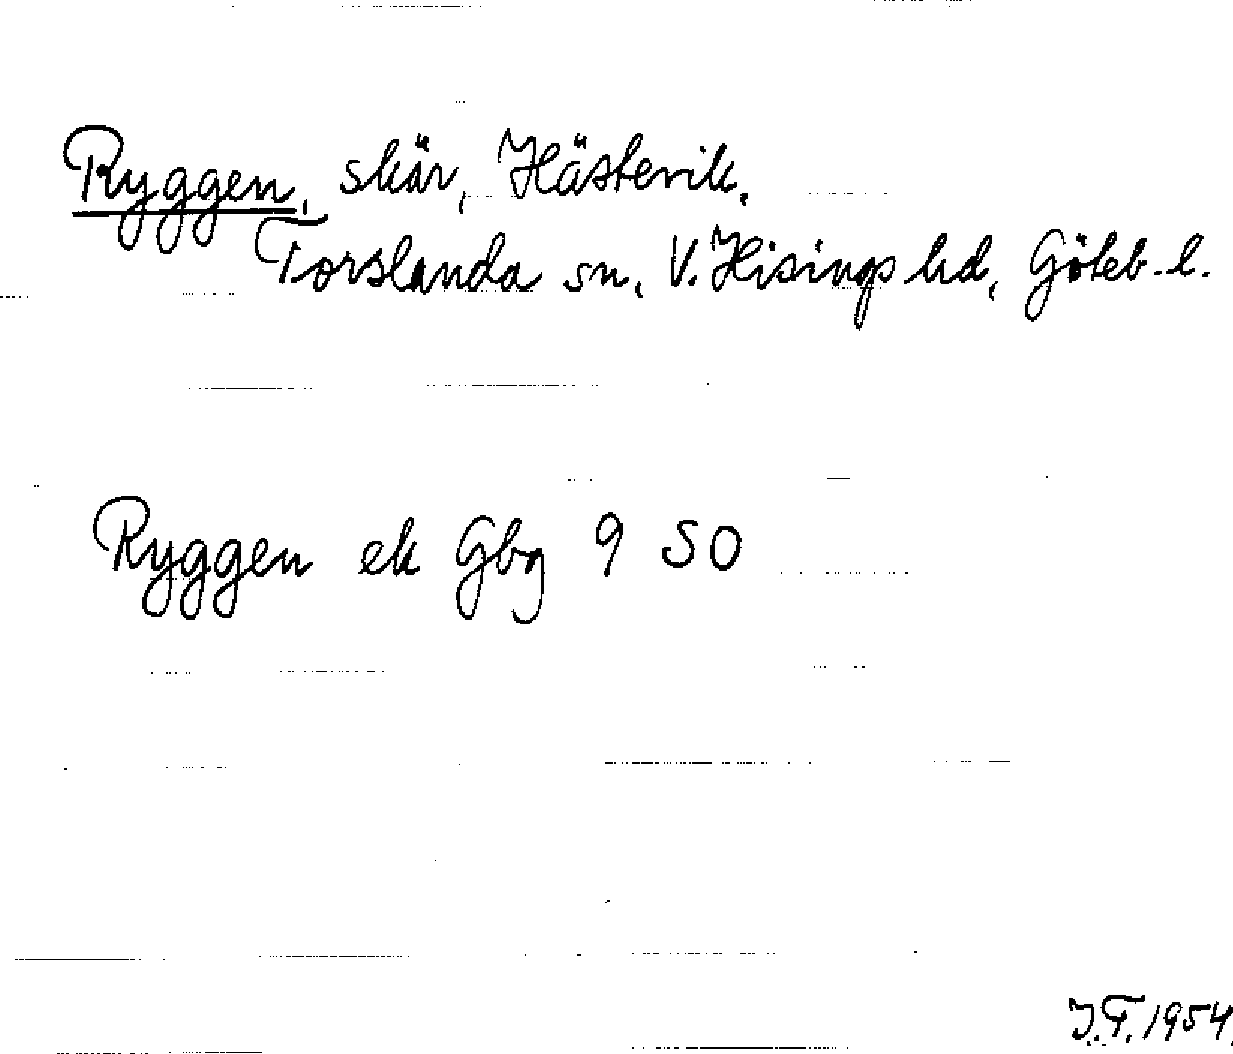 Ryggen, skär, Hästevik.
Torslanda sn, V. Hisings hd, Göteb. l.
Ryggen ek Gbg 9 SO
J.F. 1954